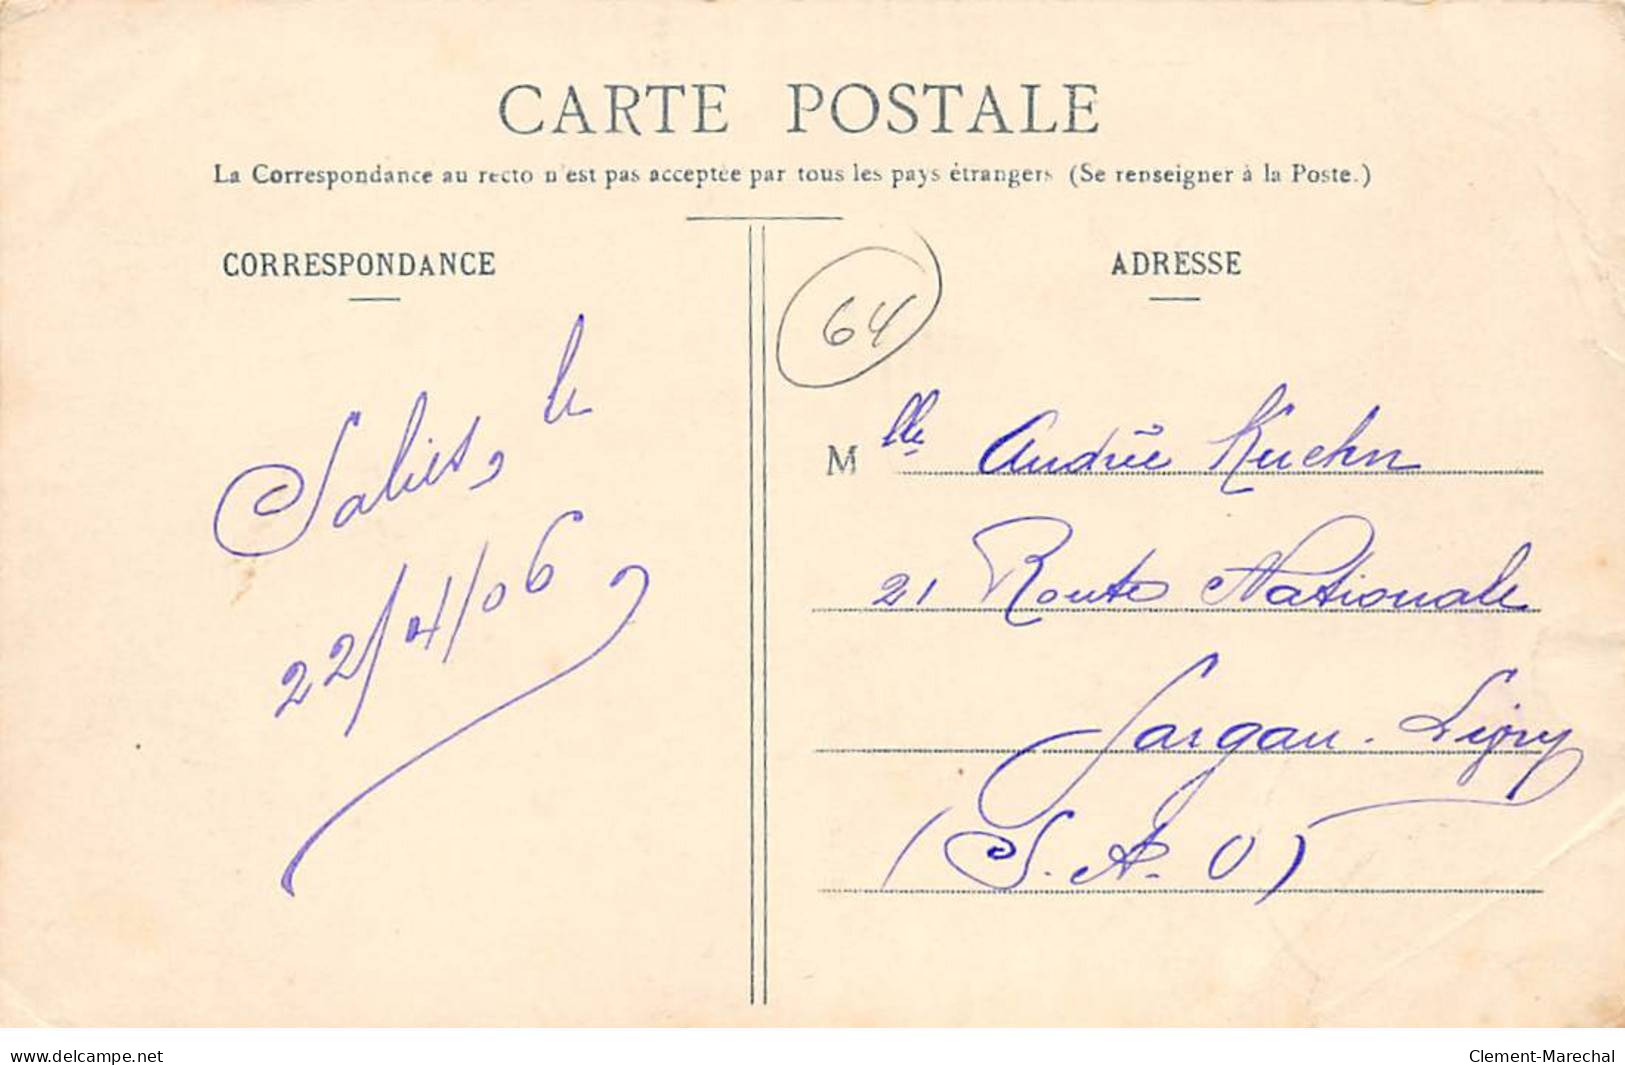 CARTE POSTALE
La Correspondance au recto n'est pas acceptée par tous les pays étrangers (Se renseigner à la Poste.)
CORRESPONDANCE
Salies, le
22/4/06
ADRESSE
64
Mlle Andrée Kuehn
21 Route Nationale
Gargan-Livry
(S.-&-O)
www.delcampe.net
Clement-Marechal